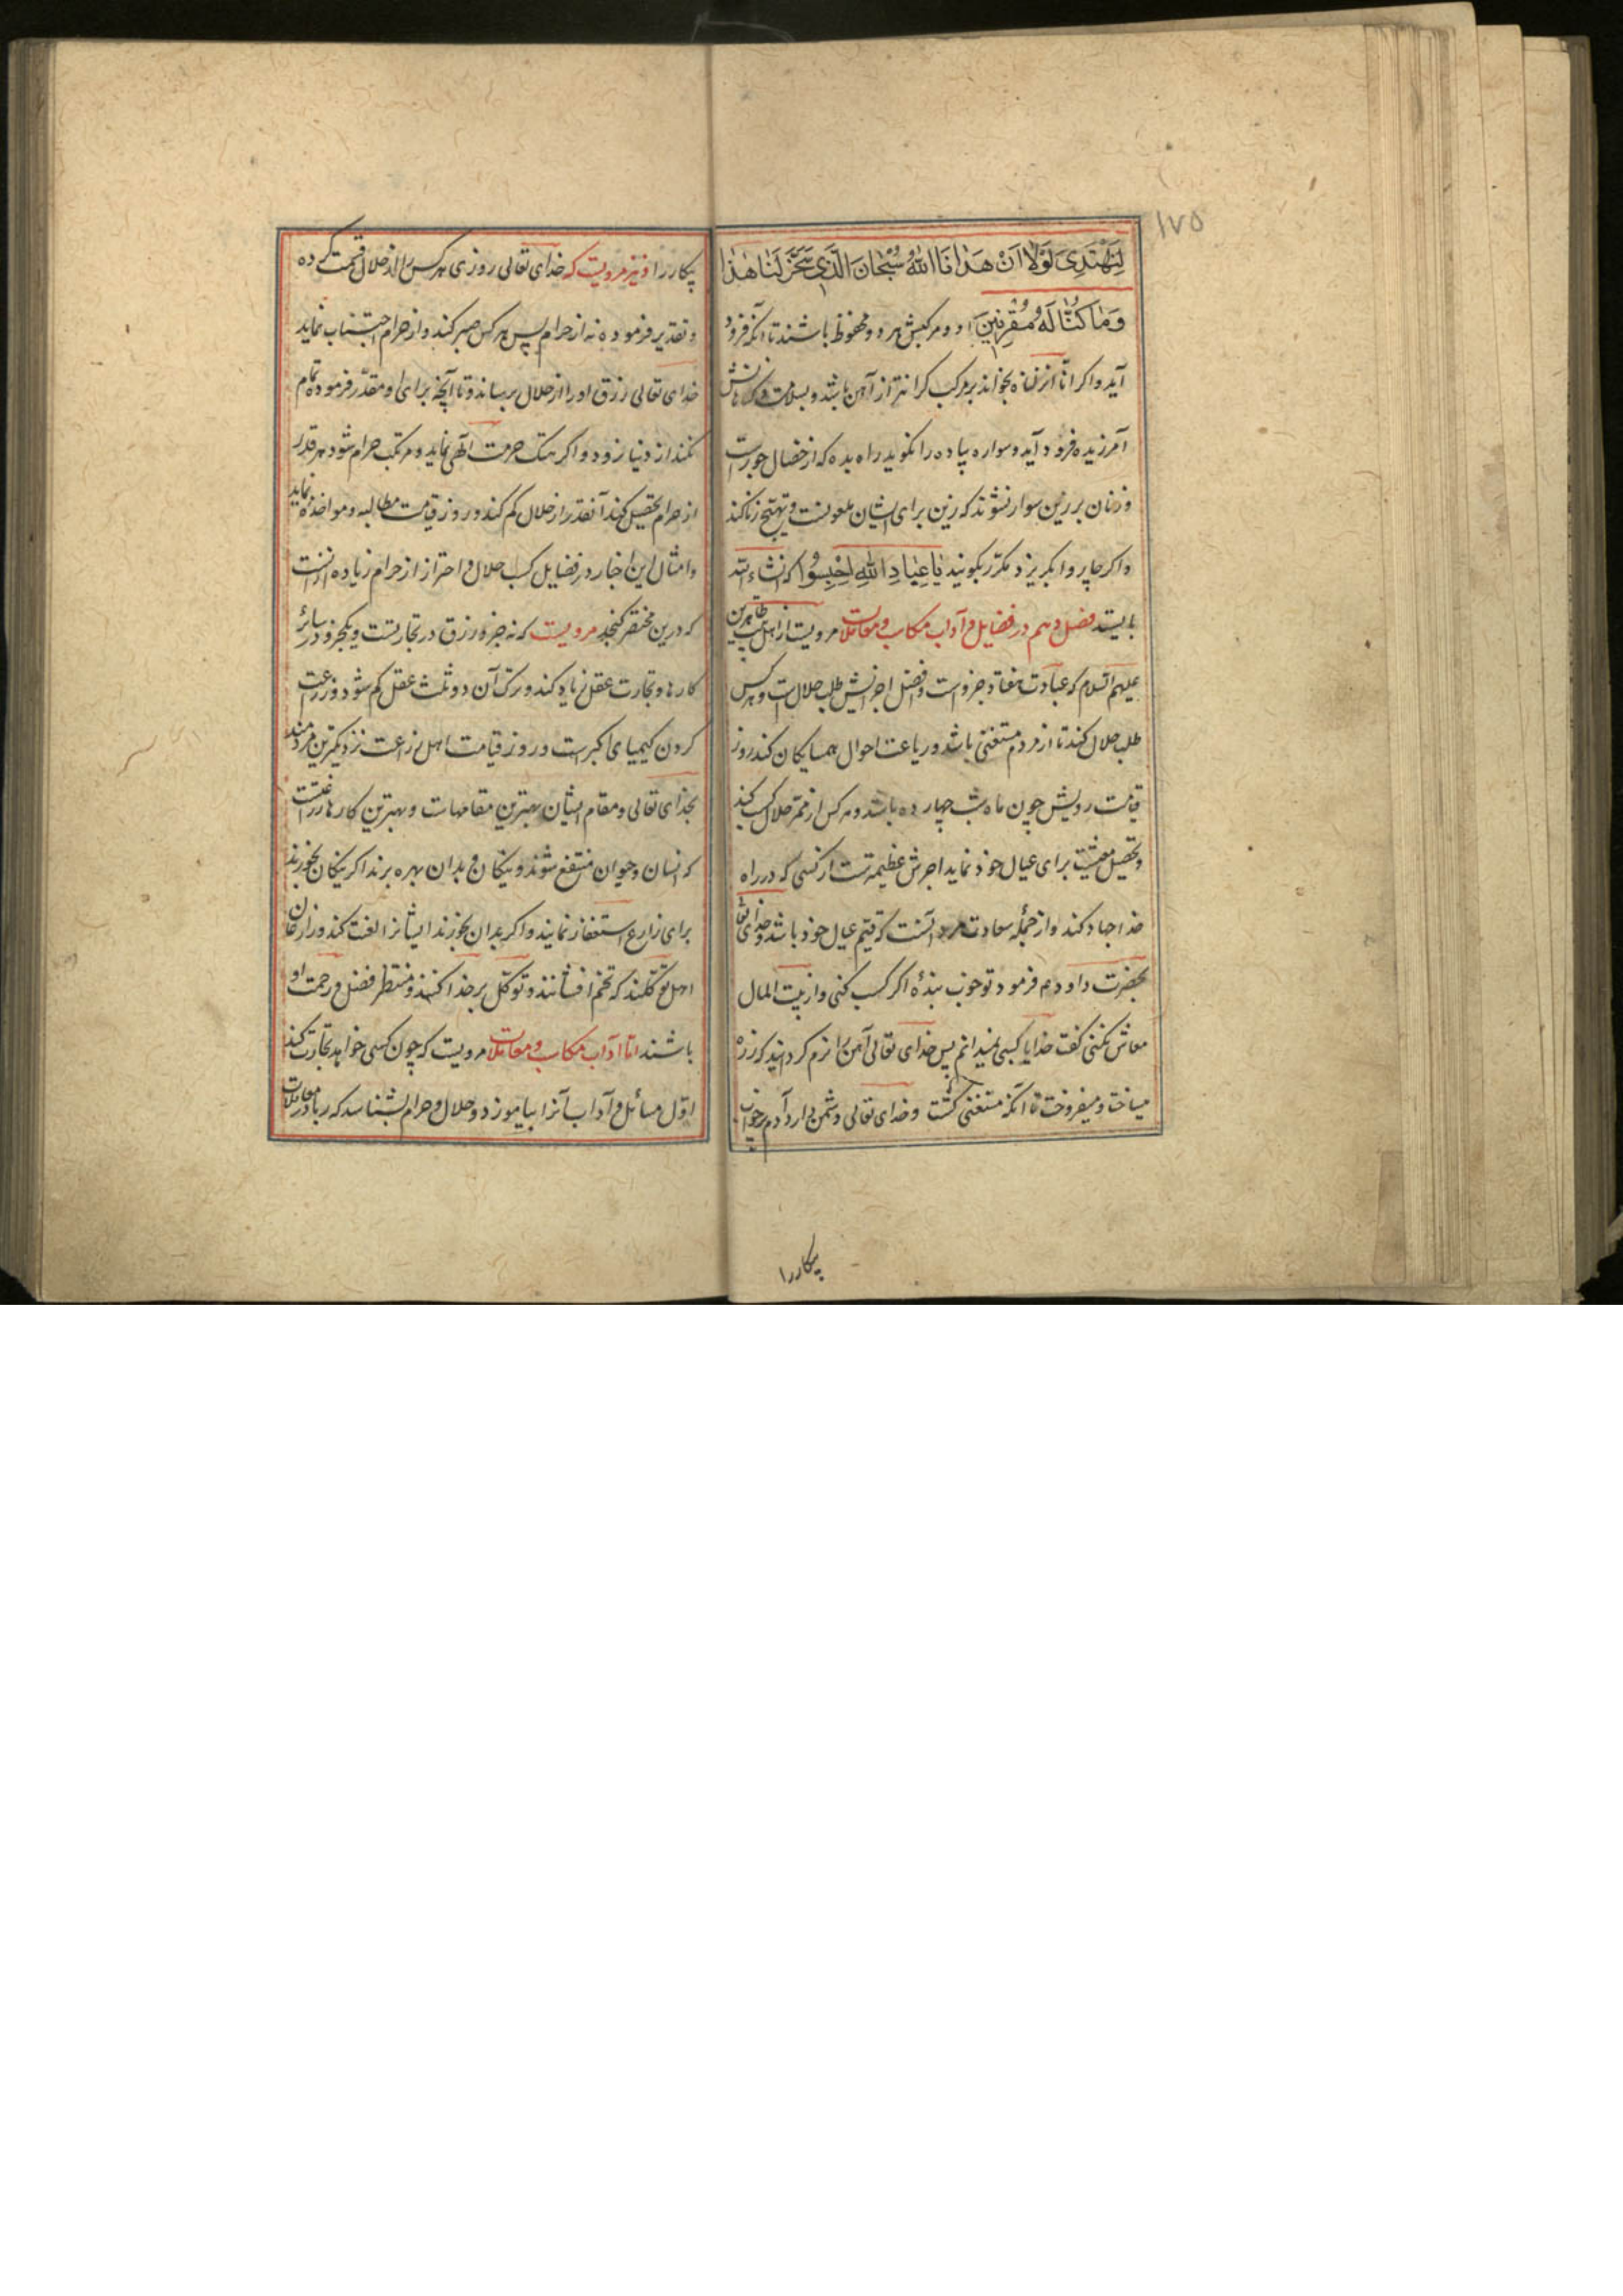 ١٧٥
لِنَهْتَدِىَ لَوْلَا اَنْ هَدٰانَا اللّٰهُ سُبْحٰانَ الَّذِى سَخَّرَ لَنٰا هٰذٰا
وَمٰا كُنّٰا لَهُ مُقْرِنِينَ او و مرکبش هر دو محفوظ باشند تا آنکه فرود
آید و اکر انا انزلناه بخواند بر مرکب کرانتر از آهن باشد و بسلامت و کناهانش
آمرزیده فرود آید و سواره پیاده را نکوید راه بده که از خصال جورست
و زنان بر زین سوار نشوند که زین برای ایشان ملعونست و تهییج زنا کند
و اکر چاروا بکریزد مکرّر بکوئید يٰا عِبٰادِ اللّٰهِ احْبِسُوا که انشاء الله
بایستد فصل دهم در فضایل و آداب مکاسب و معاملات مرویست از اهل بیت طاهرین
علیهم السلام که عبادت هفتاد جزو است و افضل اجزائش طلب حلال است و هر کس
طلب حلال کند تا از مردم مستغنی باشد و رعایت احوال همسایکان کند روز
قیامت رویش چون ماه شب چهارده باشد و هر کس از ممرّ حلال کسب کند
و تحصیل معیشت برای عیال خود نماید اجرش عظیمترست از کسی که در راه
خدا جهاد کند و از جمله سعادت مرد آنست که قیّم عیال خود باشد و خدای تعالی
بحضرت داود ع م فرمود تو خوب بندهٔ اکر کسب کنی و از بیت المال
معاش نکنی کفت خدایا کسبی نمیدانم پس خدای تعالی آهن را نرم کردانید که زره
میساخت و میفروخت تا آنکه مستغنی کشت و خدای تعالی دشمن دارد آدم پرخواب
بیکار را
بیکار را و نیز مرویست که خدای تعالی روزی هر کس را از حلال قسمت کرده
و تقدیر فرموده نه از حرام پس هر کس صبر کند و از حرام اجتناب نماید
خدای تعالی رزق او را از حلال برساند و تا آنچه برای او مقدّر فرموده تمام
نکند از دنیا نرود و اکر هتک حرمت الهی نماید و مرتکب حرام شود هر قدر
از حرام تحصیل کند آنقدر از حلال کم کند و روز قیامت مطالبه و مواخذه نماید
و امثال این اخبار در فضایل کسب حلال و احتراز از حرام زیاده از آنست
که درین مختصر کنجد مرویست که نه جزو رزق در تجارتست و یکجزو در سائر
کارها و تجارت عقل زیاد کند و ترک آن دو ثلث عقل کم شود و زراعت
کردن کیمیای اکبرست و روز قیامت اهل زراعت نزدیکترین مردمند
بخدای تعالی و مقام ایشان بهترین مقامهات و بهترین کارها زراعتست
که انسان و حیوان منتفع شوند و نیکان و بدان بهره برند اکر نیکان بخورند
برای زارع استغفار نمایند و اکر بدان بخورند ایشانرا لعنت کند و زارعان
اهل توکّلند که تخم افشانند و توکّل بر خدا کنند و منتظر فضل و رحمت او
باشند امّا آداب مکاسب و معاملات مرویست که چون کسی خواهد تجارت کند
اوّل مسائل و آداب آنرا بیاموزد و حلال و حرام بشناسد که ربا در معاملات